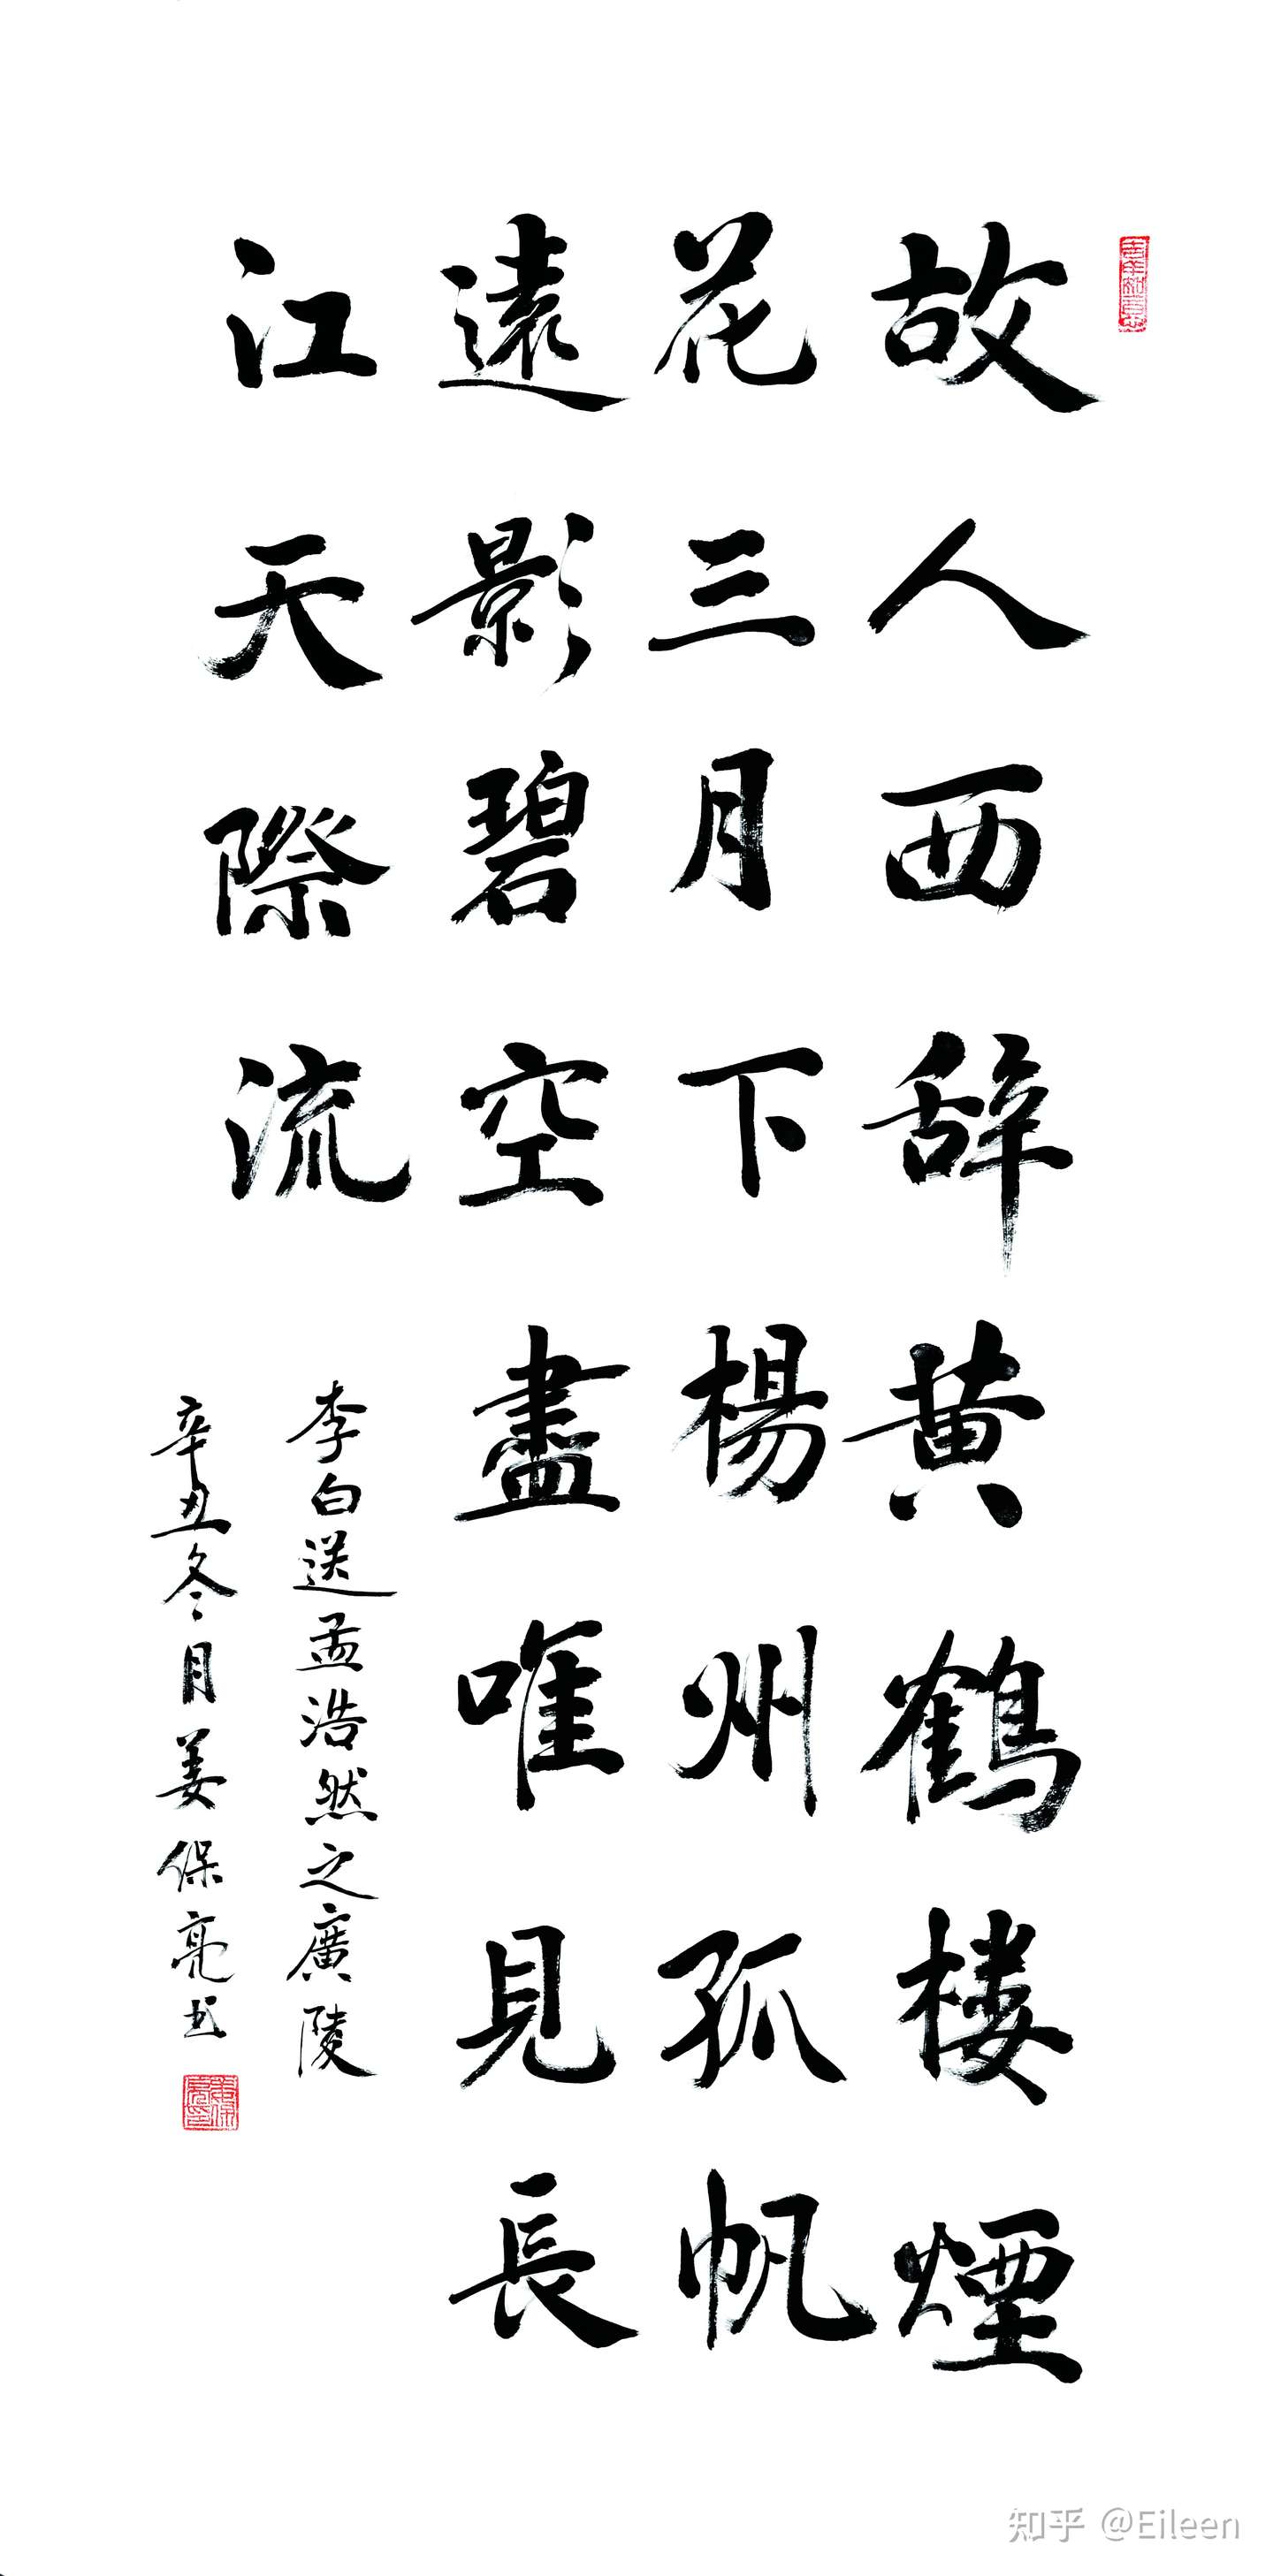 故人西辞黄鹤楼煙
花三月下楊州孤帆
遠影碧空盡唯見長
江天際流
李白送孟浩然之廣陵
辛丑冬月姜保亮书
知乎 @Eileen